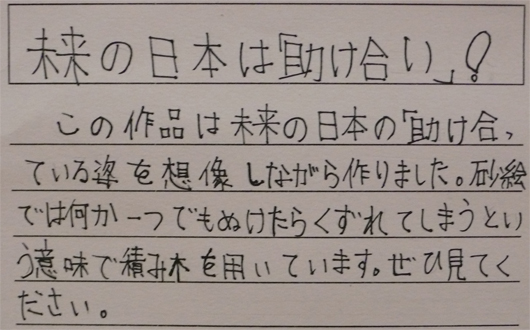 未来の日本は「助け合い」!
この作品は未来の日本の「助け合っ
ている姿を想像しながら作りました。砂絵
では何か一つでもぬけたらくずれてしまうとい
う意味で積み木を用いています。ぜひ見てく
ださい。